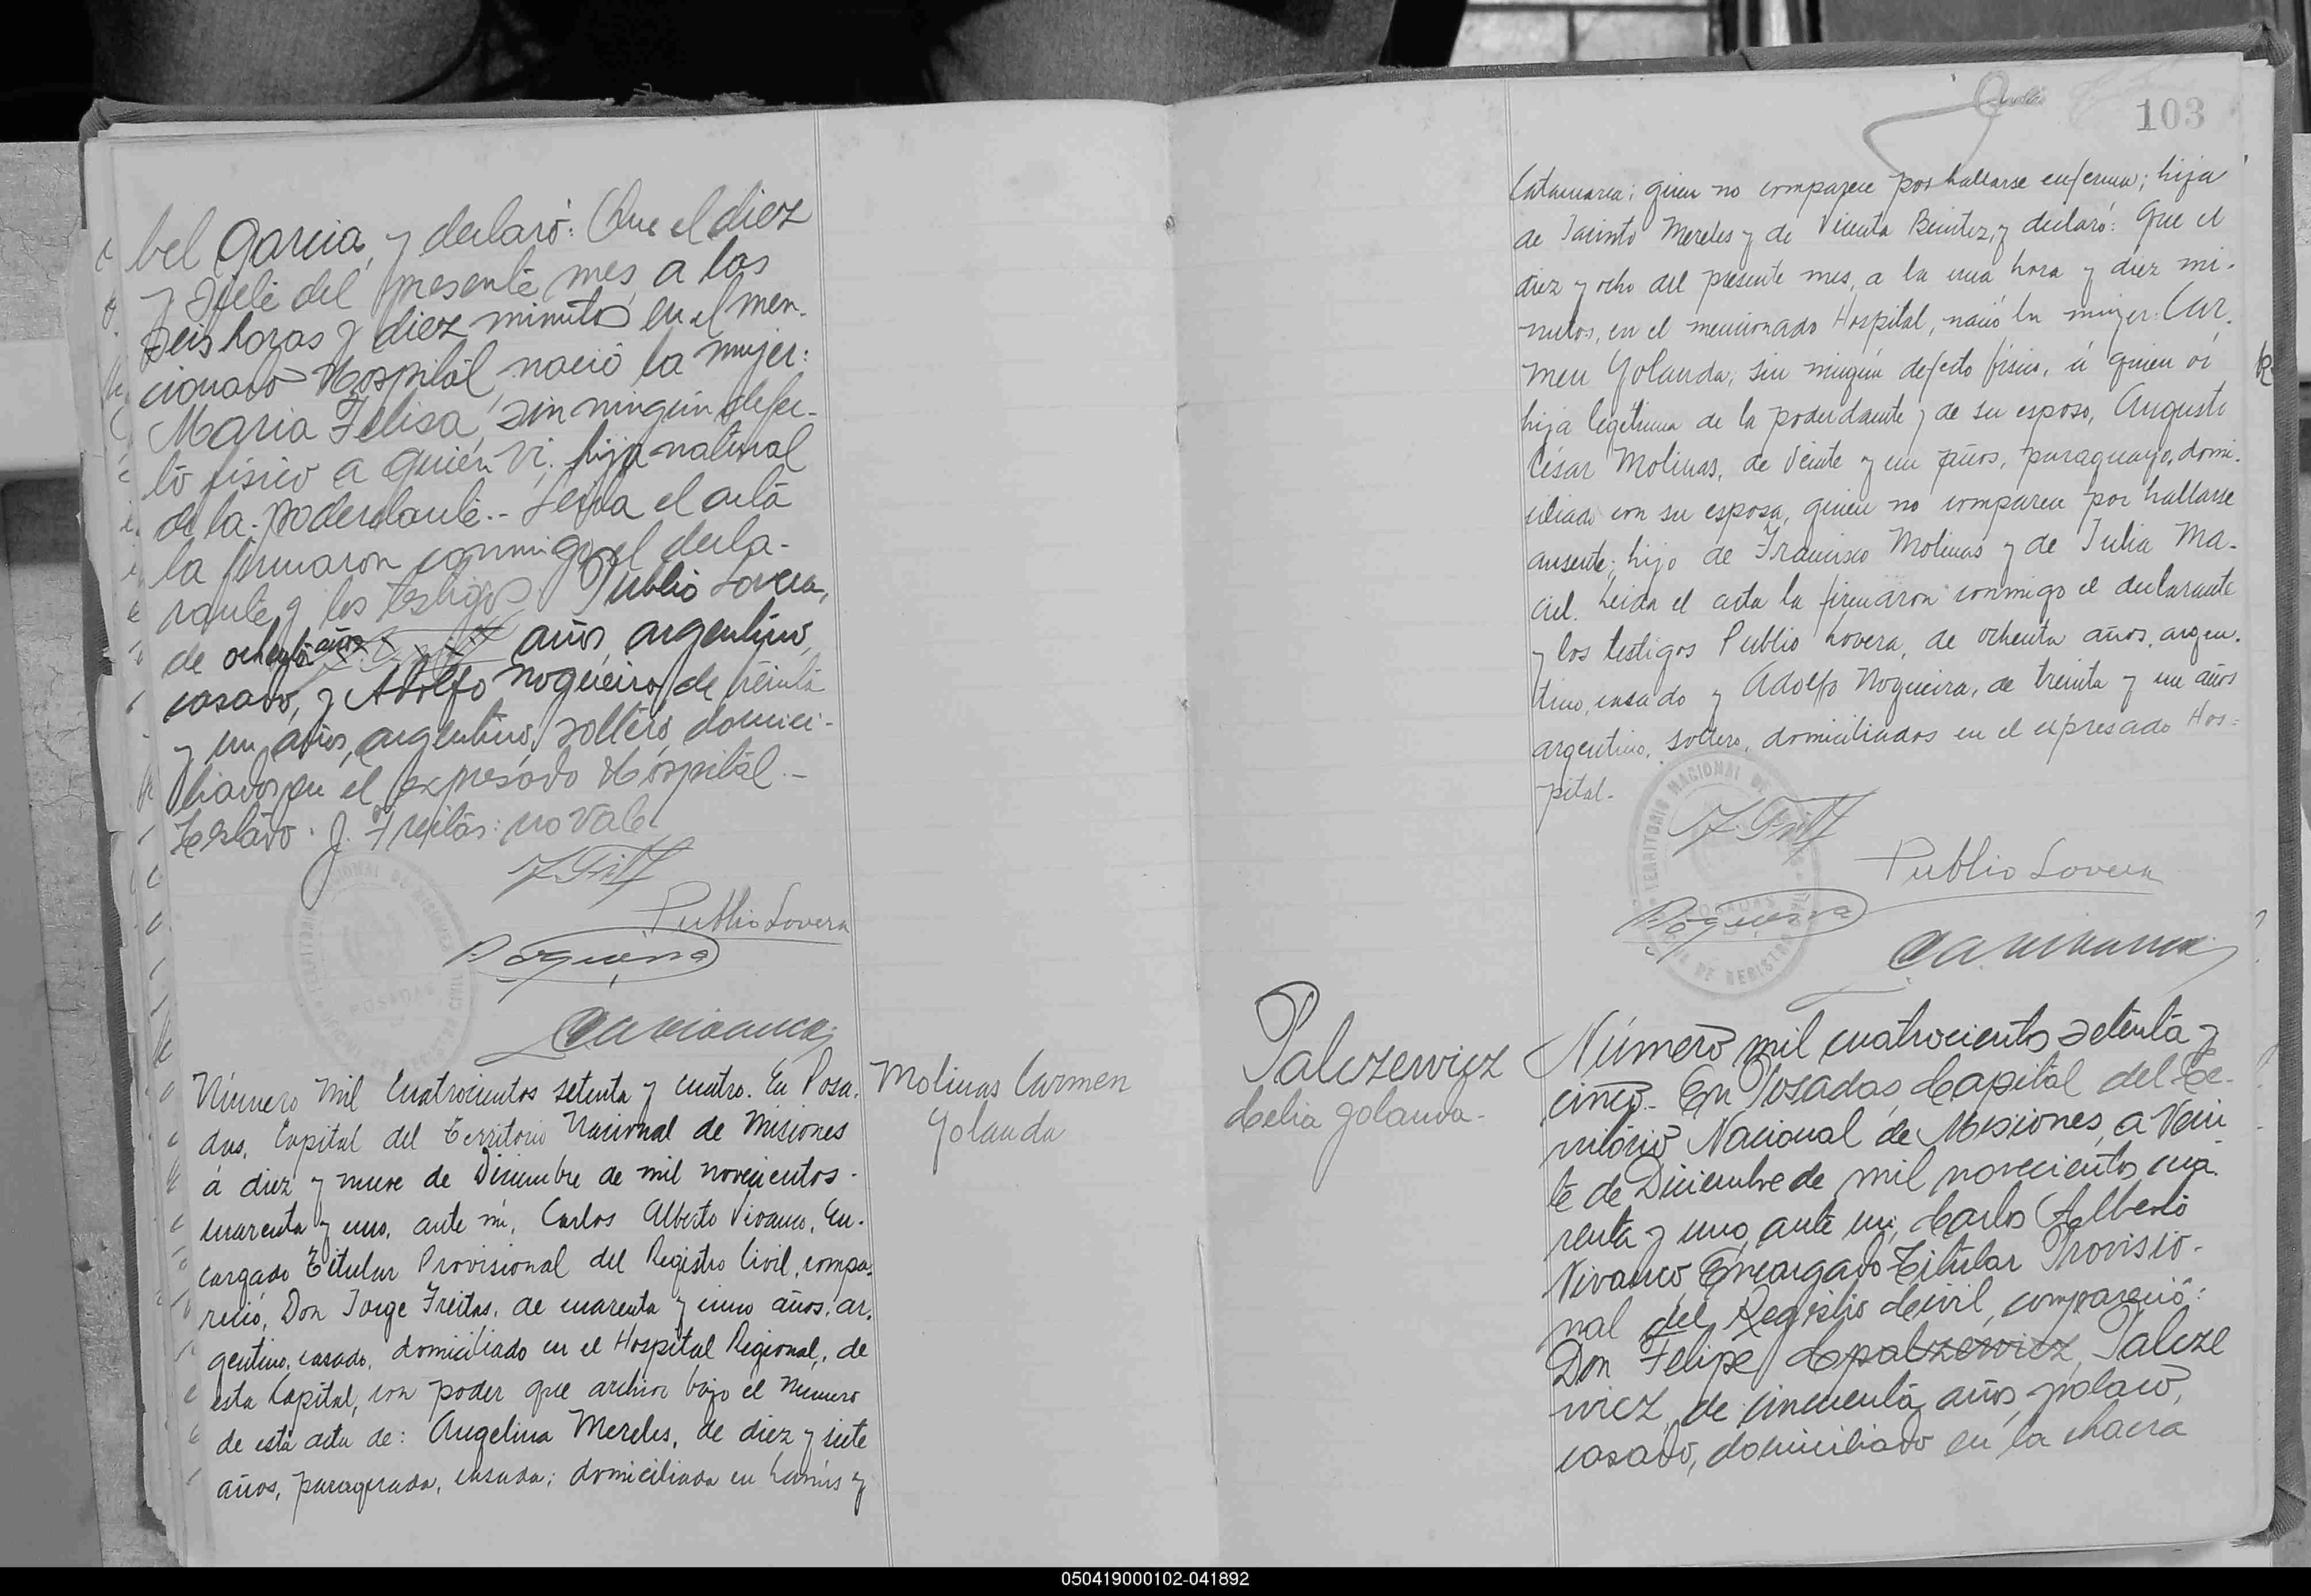 bel Garcia, y declaró: Que el diez
y siete del presente mes, a las
seis horas y diez minutos en el men-
cionado Hospital, nació la mujer:
Maria Felisa, sin ningún defec-
to físico a quien vi, hija natural
de la poderdante.- Leida el acta
la firmaron conmigo el decla-
rante y los testigos Publio Lovera,
de ochenta años años, argentino,
casado, y Adolfo Nogueira, de treinta
y un años, argentino, soltero, domici-
liados en el expresado Hospital.-
Testado: J. Freitas: no vale.
Publio Lovera
Nogueira
POSADAS
Número Mil Cuatrocientos setenta y cuatro. En Posa-
das, Capital del Territorio Nacional de Misiones
á diez y nueve de Diciembre de mil novecientos
cuarenta y uno, ante mí, Carlos Alberto Vivanco, En-
cargado Titular Provisional del Registro Civil, compa-
reció, Don Jorge Freitas, de cuarenta y cinco años, ar-
gentino, casado, domiciliado en el Hospital Regional, de
esta Capital, con poder que archivo bajo el Número
de esta acta de: Angelina Mereles, de diez y siete
años, paraguaya, casada; domiciliada en Lanús y
Molinas Carmen
Yolanda
103
Catamarca; quien no comparece por hallarse enferma; hija
de Jacinto Mereles y de Vicenta Benitez, y declaró: Que el
diez y ocho del presente mes, a la una hora y diez mi-
nutos, en el mencionado Hospital, nació la mujer: Car-
men Yolanda; sin ningún defecto físico, á quien ví
hija legítima de la poderdante y de su esposo, Augusto
César Molinas, de veinte y un años, paraguayo, domi-
ciliado con su esposa, quien no comparece por hallarse
ausente; hijo de Francisco Molinas y de Julia Ma-
ciel. Leida el acta la firmaron conmigo el declarante
y los testigos Publio Lovera, de ochenta años, argen-
tino, casado y Adolfo Nogueira, de treinta y un años
argentino, soltero, domiciliados en el expresado Hos-
pital.-
TERRITORIO NACIONAL DE
POSADAS
Publio Lovera
Nogueira
Palczewicz
Celia Yolanda.-
Número mil cuatrocientos setenta y
cinco.- En Posadas, Capital del Te-
rritorio Nacional de Misiones, a Vein
te de Diciembre de mil novecientos cua-
renta y uno, ante mi, Carlos Alberto
Vivanco, Encargado Titular Provisio-
nal del Registro Civil, compareció:
Don Felipe Palcze
wicz, de cincuenta años, polaco,
casado, domiciliado en la chacra
050419000102-041892